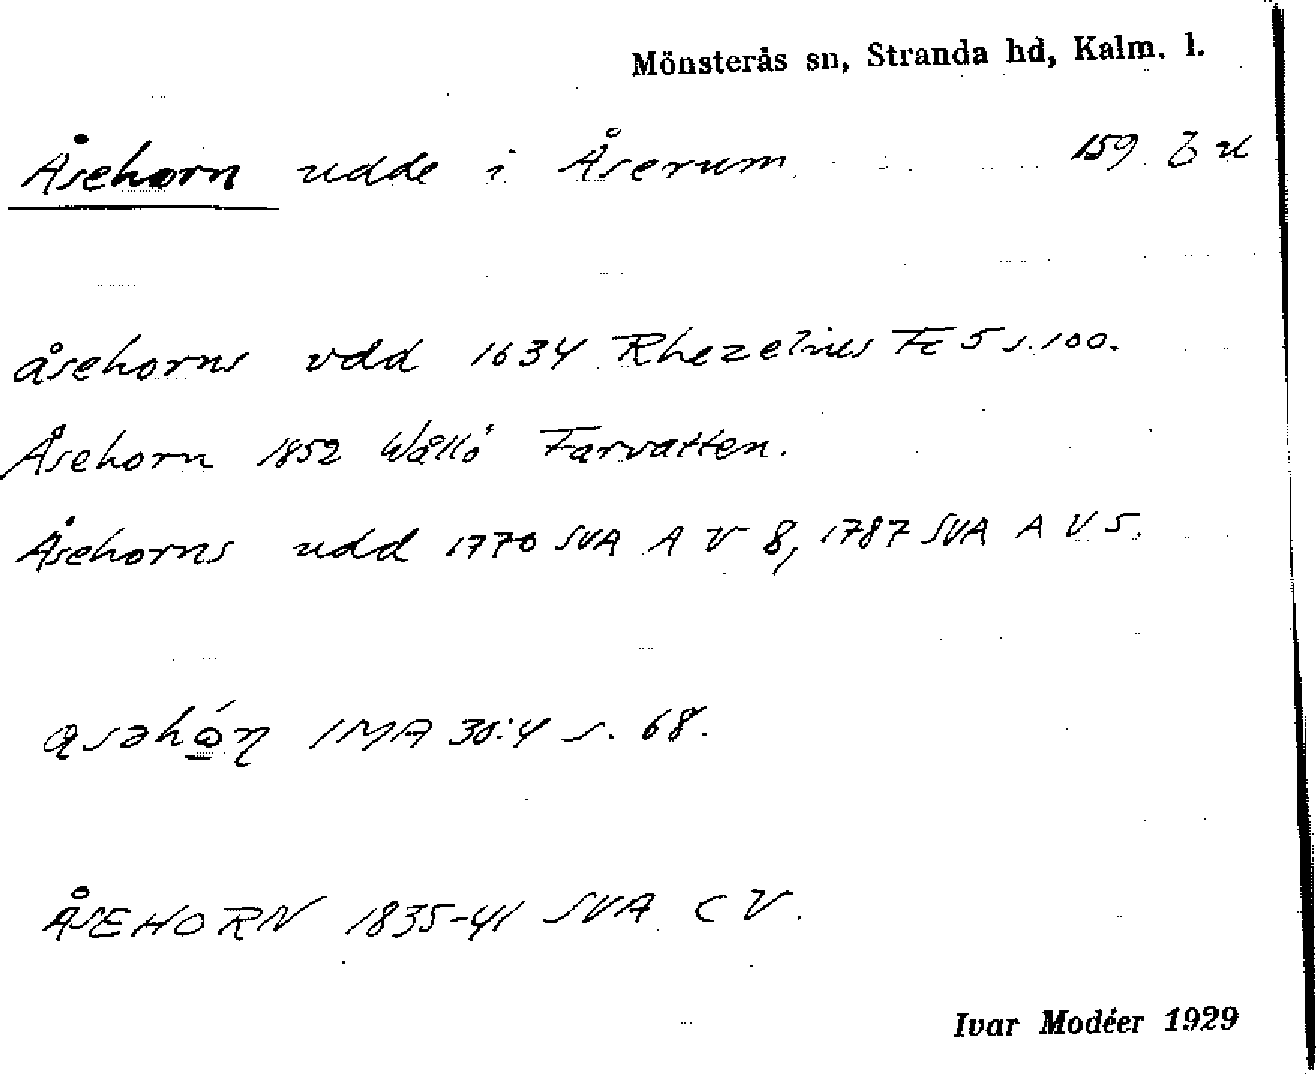 Mönsterås sn, Stranda hd, Kalm. l.
Åsehorn udde i Åserum. 159. B u
åsehorns vdd 1634 Rhezelius Fc 5 s. 100.
Åsehorn 1852 Wållö Farvatten.
Åsehorns udd 1770 SVA A V 8, 1787 SVA A V 5.
IMA 30:4 s. 68.
ÅSEHORN 1835-41 SVA C V.
Ivar Modéer 1929